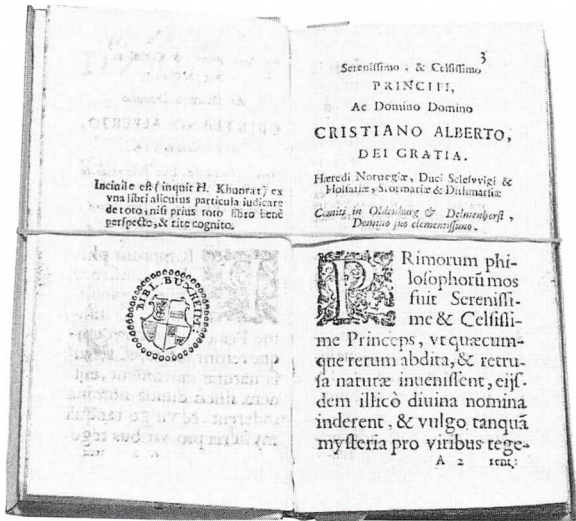 Inciuile est (inquit H. Khunrat) ex
vna libri alicuius particula iudicare
de toto, nisi prius toto libro benè
perspecto, & rite cognito.
BIBL. BUXHEIM
3
Serenissimo, & Celsissimo
PRINCIPI,
Ac Domino Domino
CRISTIANO ALBERTO,
DEI GRATIA.
Hæredi Noruegiæ, Duci Selesvvigi &
Holsatiæ, Stormariæ & Dithmarsiæ
Comiti in Oldenburg & Delmenhorst,
Domino suo clementissimo.
PRimorum phi-
losophorū mos
fuit Serenissi-
me & Celsissi-
me Princeps, vt quæcum-
que rerum abdita, & retru-
sa naturæ inuenissent, eijs-
dem illicò diuina nomina
inderent, & vulgo tanquā
mysteria pro viribus tege-
A 2 rent: